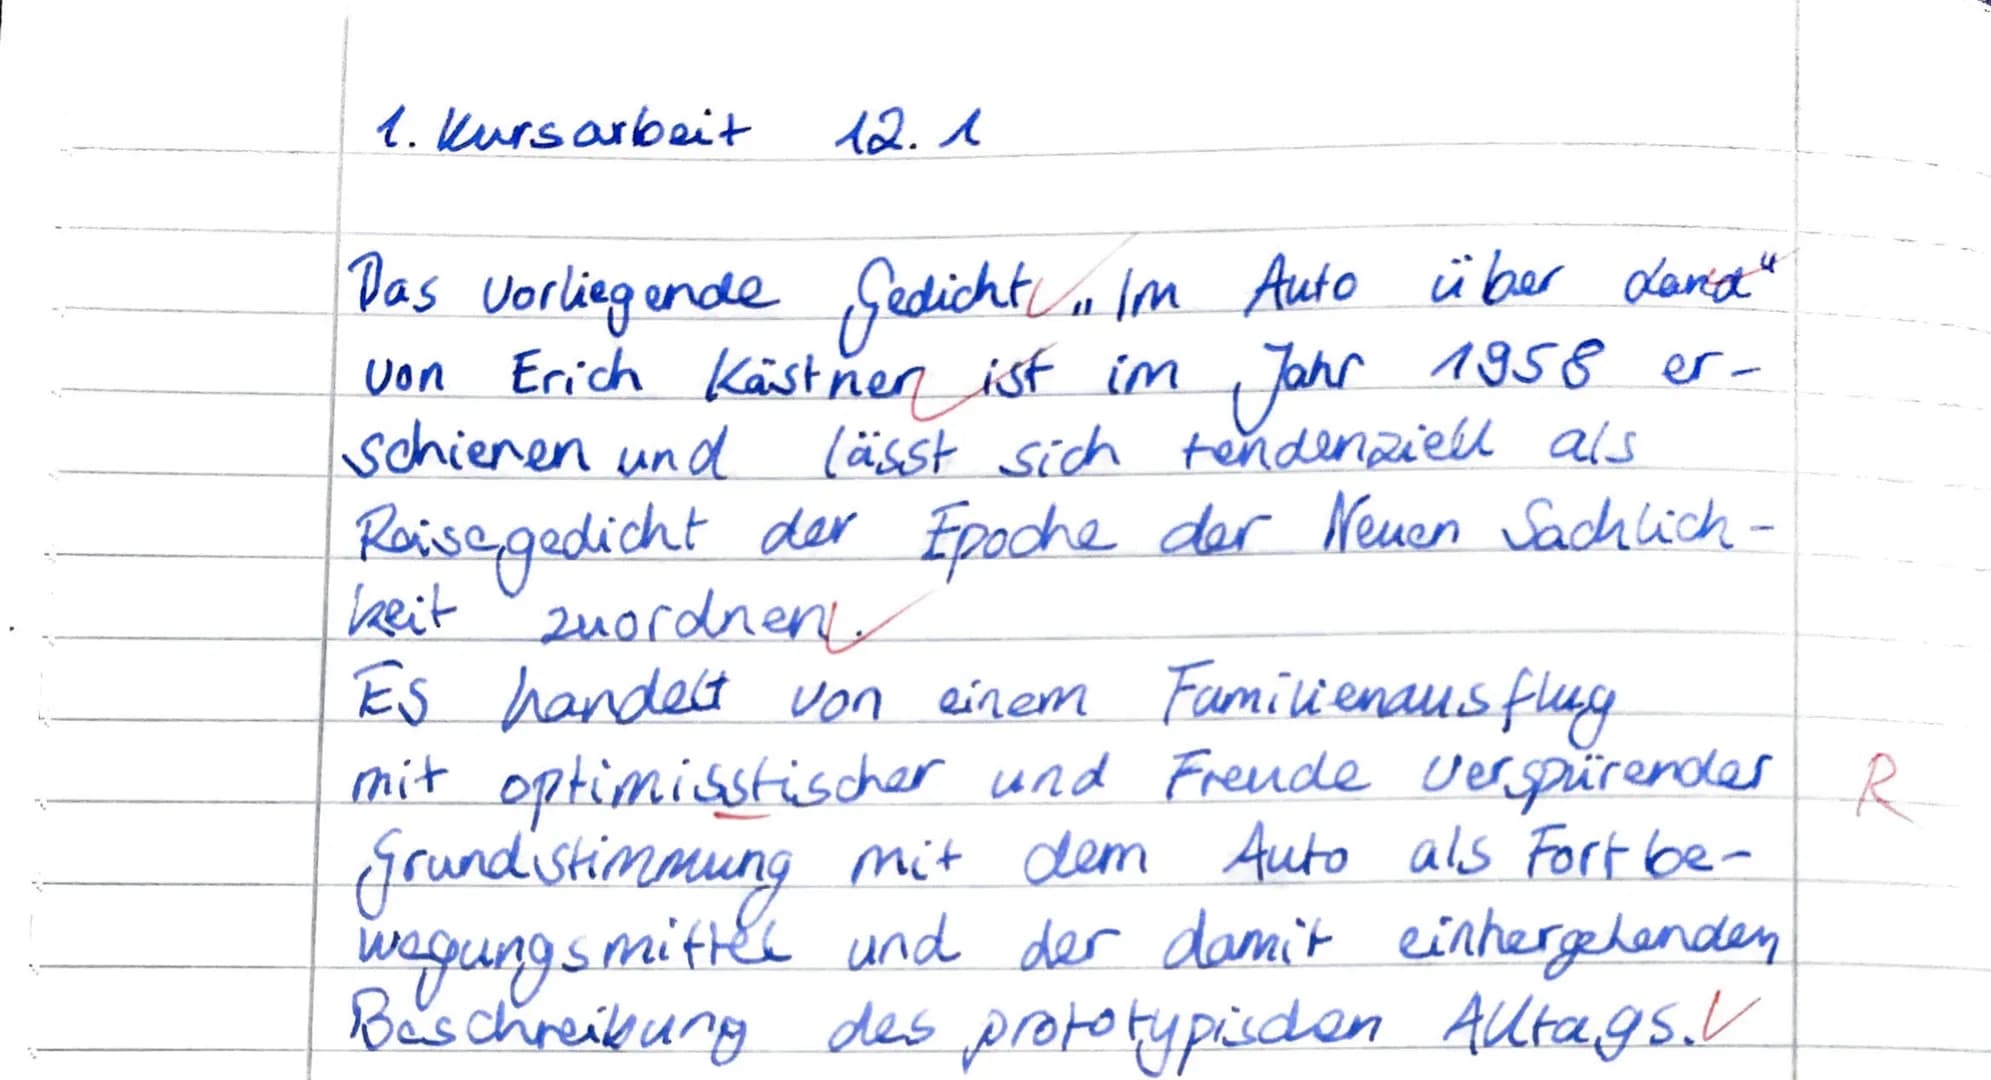 1. Kursarbeit 12.1
Das vorliegende Gedicht „Im Auto über Land"
von Erich Kästner ist im Jahr 1958 er-
schienen und lässt sich tendenziell als
Reisegedicht der Epoche der Neuen Sachlich-
keit zuordnen.
Es handelt von einem Familienausflug
mit optimisstischer und Freude verspürender R
Grundstimmung mit dem Auto als Fortbe-
wegungsmittel und der damit einhergehenden
Beschreibung des prototypischen Alltags.